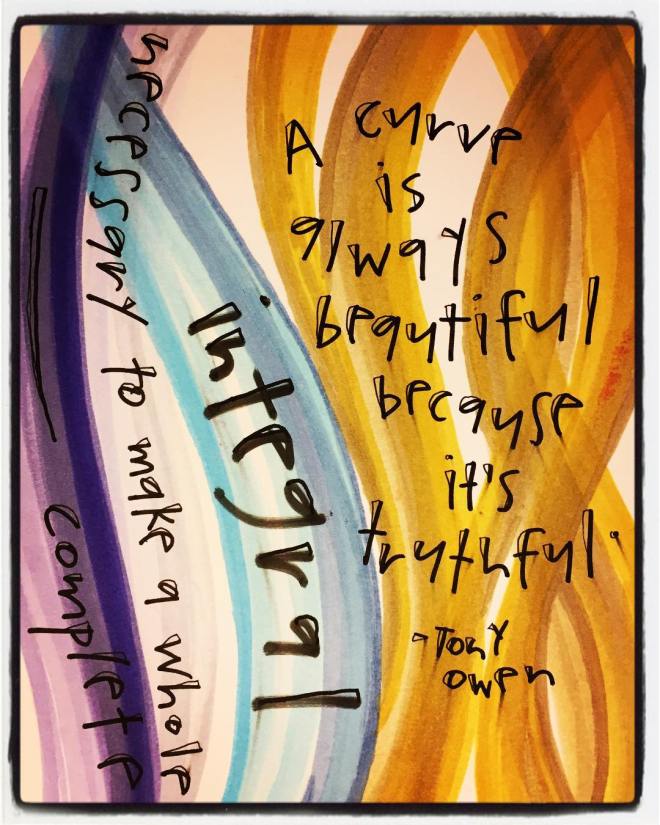 A curve
is
always
beautiful
because
it's
truthful.
-Tony
owen
integral
necessary to make a whole
complete